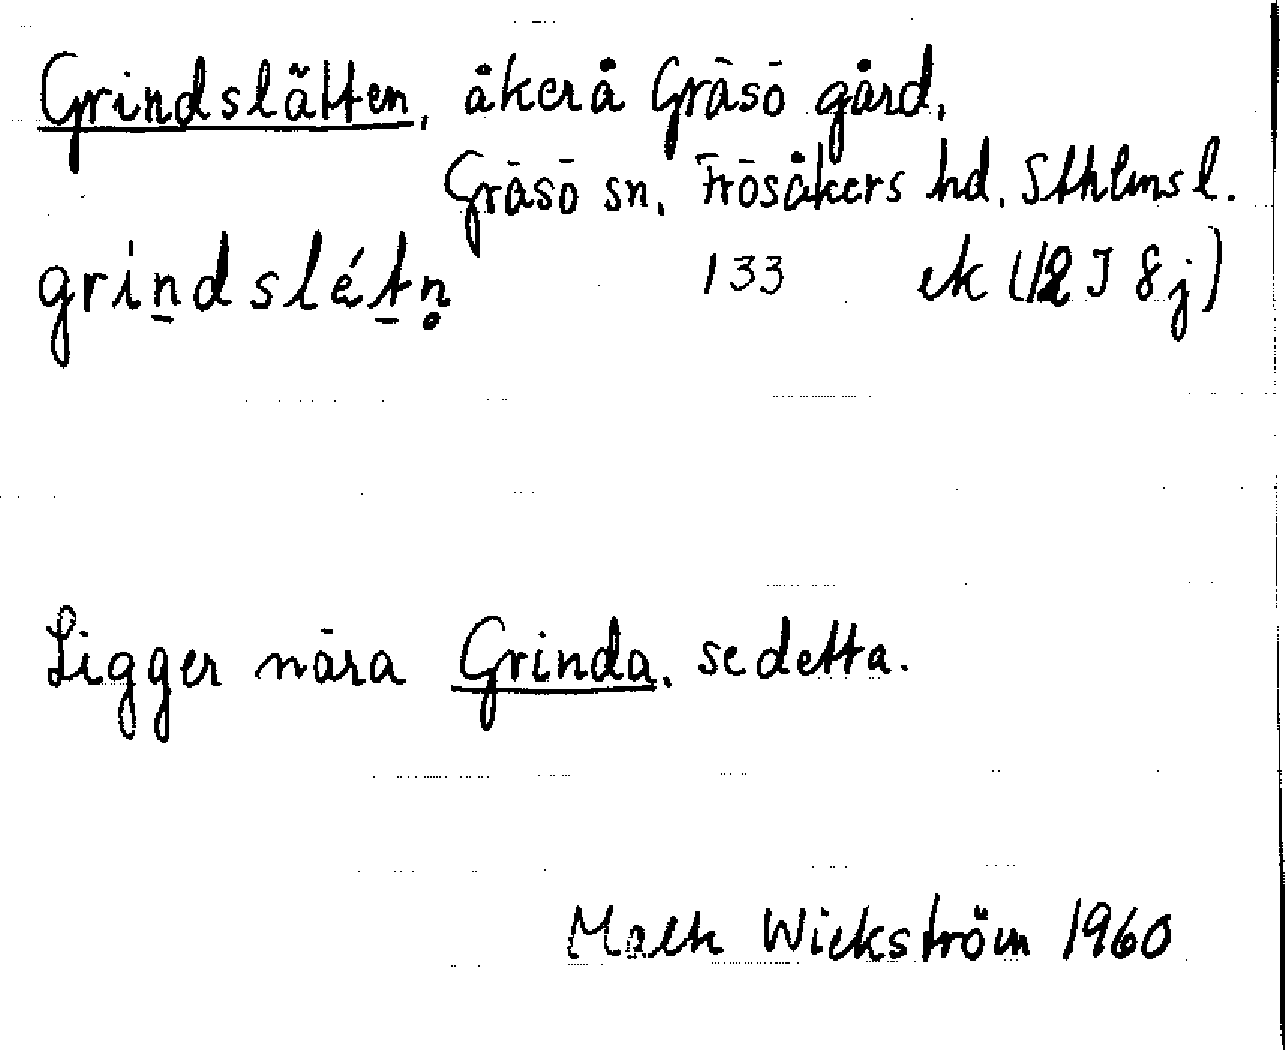 Grindslätten, åker å Gräsö gård,
Gräsö sn, Frösåkers hd, Sthlms l.
gri̠ndslét̠n̥ 133 ek (12 I 8 j)
Ligger nära Grinda, se detta.
Wickström 1960